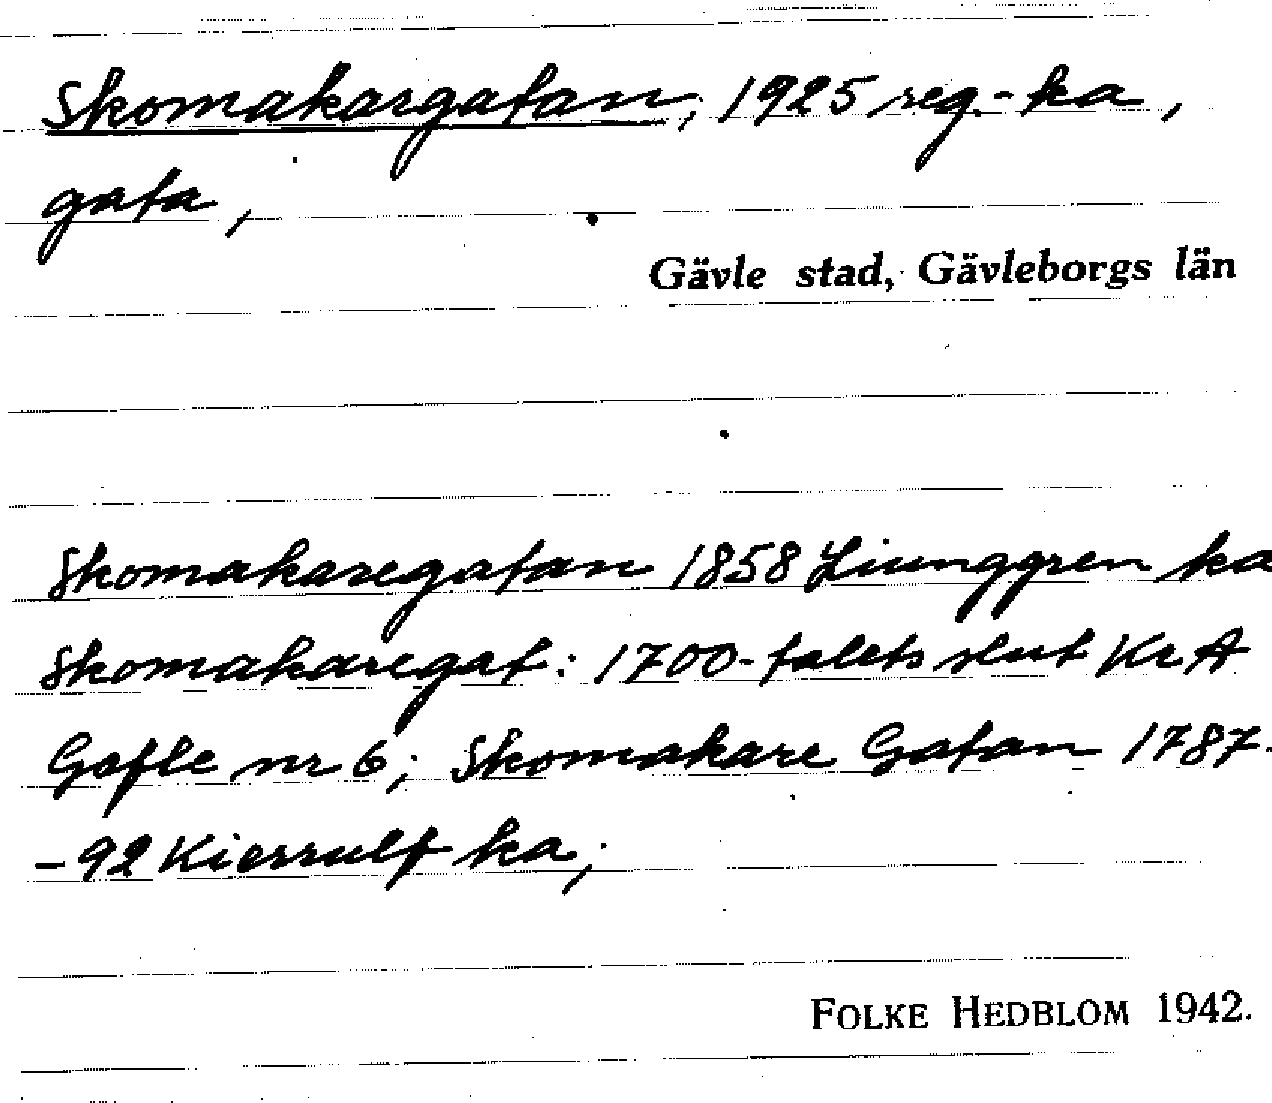 Skomakargatan, 1925 reg.-ka,
gata,
Gävle stad, Gävleborgs län
Skomakaregatan 1858 Ljunggren ka
Skomakaregat: 1700-talets slut KrA
Gefle nr 6; Skomakare Gatan 1787-
-92 Kierrulf ka;
FOLKE HEDBLOM 1942.